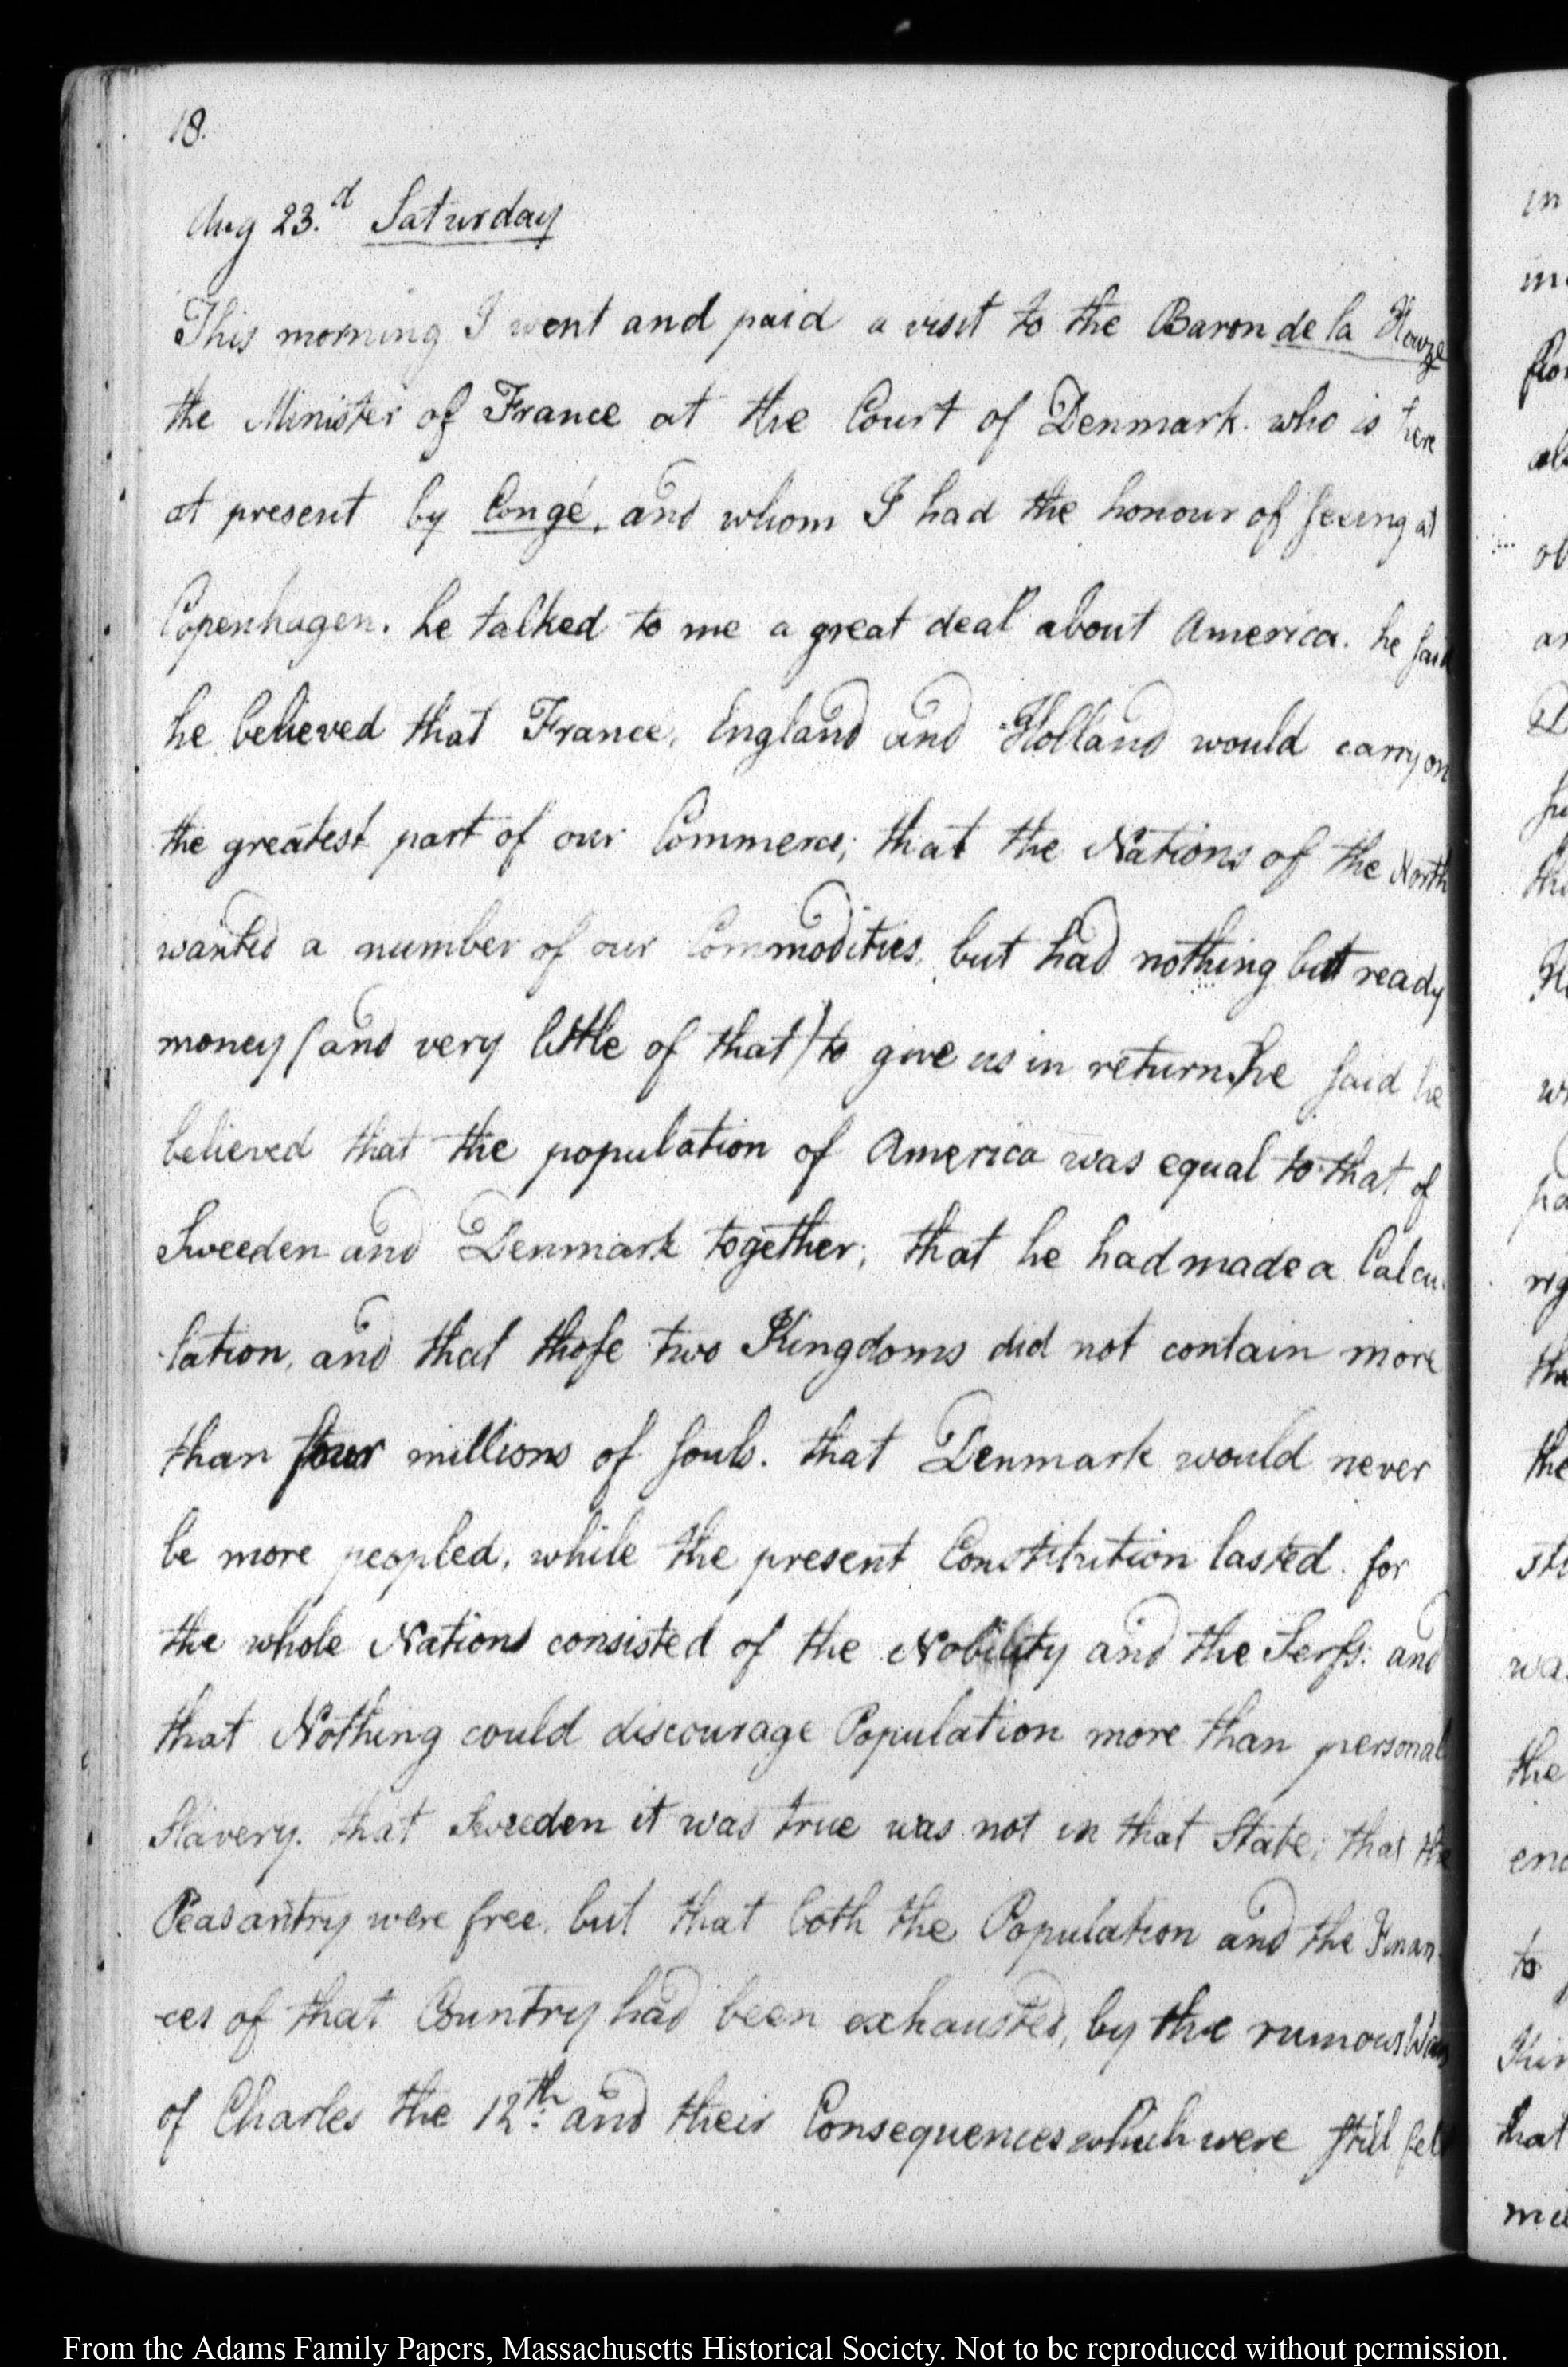 18.
Aug 23.d Saturday
This morning I went and paid a visit to the Baron de la Houze
the Minister of France at the Court of Denmark. who is here
at present by Congé, and whom I had the honour of seeing at
Copenhagen. he talked to me a great deal about America. he said
he believed that France, England and Holland would carry on
the greatest part of our Commerce; that the Nations of the North
wanted a number of our Commodities, but had nothing but ready
money (and very little of that) to give us in return. he said he
believed that the population of America was equal to that of
Sweeden and Denmark together; that he had made a Calcu-
lation, and that those two Kingdoms did not contain more
than four millions of souls. that Denmark would never
be more peopled, while the present Constitution lasted. for
the whole Nations consisted of the Nobility and the Serfs: and
that Nothing could discourage Population more than personal
Slavery. that Sweeden it was true was not in that State; that the
Peasantry were free. but that both the Population and the Finan-
-ces of that Country had been exhausted, by the ruinous Wars
of Charles the 12th: and their Consequences which were still felt
From the Adams Family Papers, Massachusetts Historical Society. Not to be reproduced without permission.